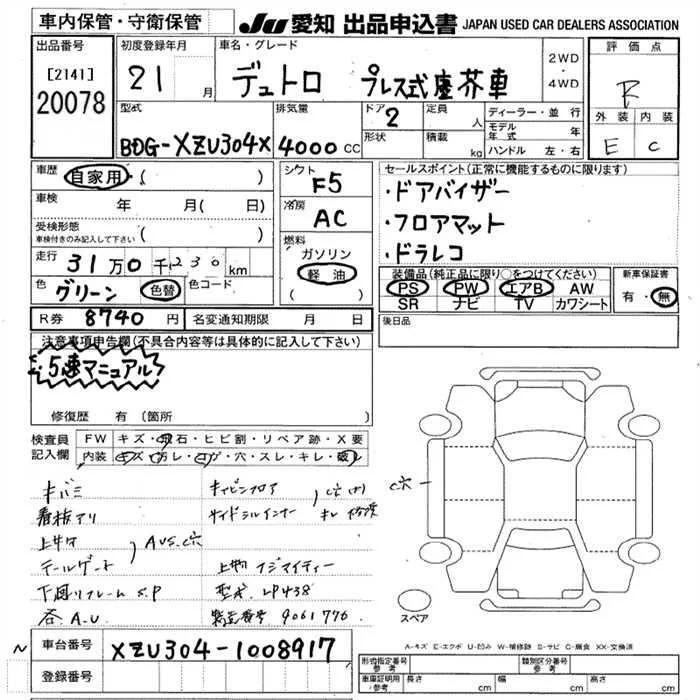 車内保管・守衛保管
JU 愛知 出品申込書 JAPAN USED CAR DEALERS ASSOCIATION
出品番号
[2141]
20078
初度登録年月
21 月
車名・グレード
デュトロ プレス式塵芥車
2WD
・
4WD
評価点
R
外装 内装
E C
型式
BDG-XZU304X
排気量
4000 cc
ドア
2
形状
定員
人
積載
kg
ディーラー・並行
モデル年式 年
ハンドル 左・右
車歴
自家用・( )
車検 年 月( 日)
受検形態
車検付きのみ記入して下さい ( )
走行 31万0千230km
色 グリーン 色替 色コード
シフト
F5
冷房
AC
燃料
ガソリン
軽油
( )
セールスポイント(正常に機能するものに限ります)
・ドアバイザー
・フロアマット
・ドラレコ
装備品(純正品に限り○をつけてください)
PS PW エアB AW
SR ナビ TV カワシート
新車保証書
有・無
R券 8740 円 名変通知期限 月 日
後日品
注意事項申告欄(不具合内容等は具体的に記入して下さい)
5速マニュアル
修復歴 有(箇所 )
検査員
記入欄
FW キズ・飛石・ヒビ割・リペア跡・X要
内装 キズ・汚レ・コゲ・穴・スレ・キレ・破レ
キバミ
看板アリ
上物
テールゲート
AUS.C穴
下廻リフレーム S.P
各A.U
キャビンフロア
サイドシルインナー
上物 フジマイティー
型式 LP438
製造番号 9061776
C穴
スペア
A-キズ E-エクボ U-凹み W-補修跡 S-サビ C-腐食 XX-交換済
N
車台番号 XZU304-1008917
登録番号
形式指定番号
参考
類別区分番号
参考
車庫証明用
参考
長さ cm
幅 cm
高さ cm